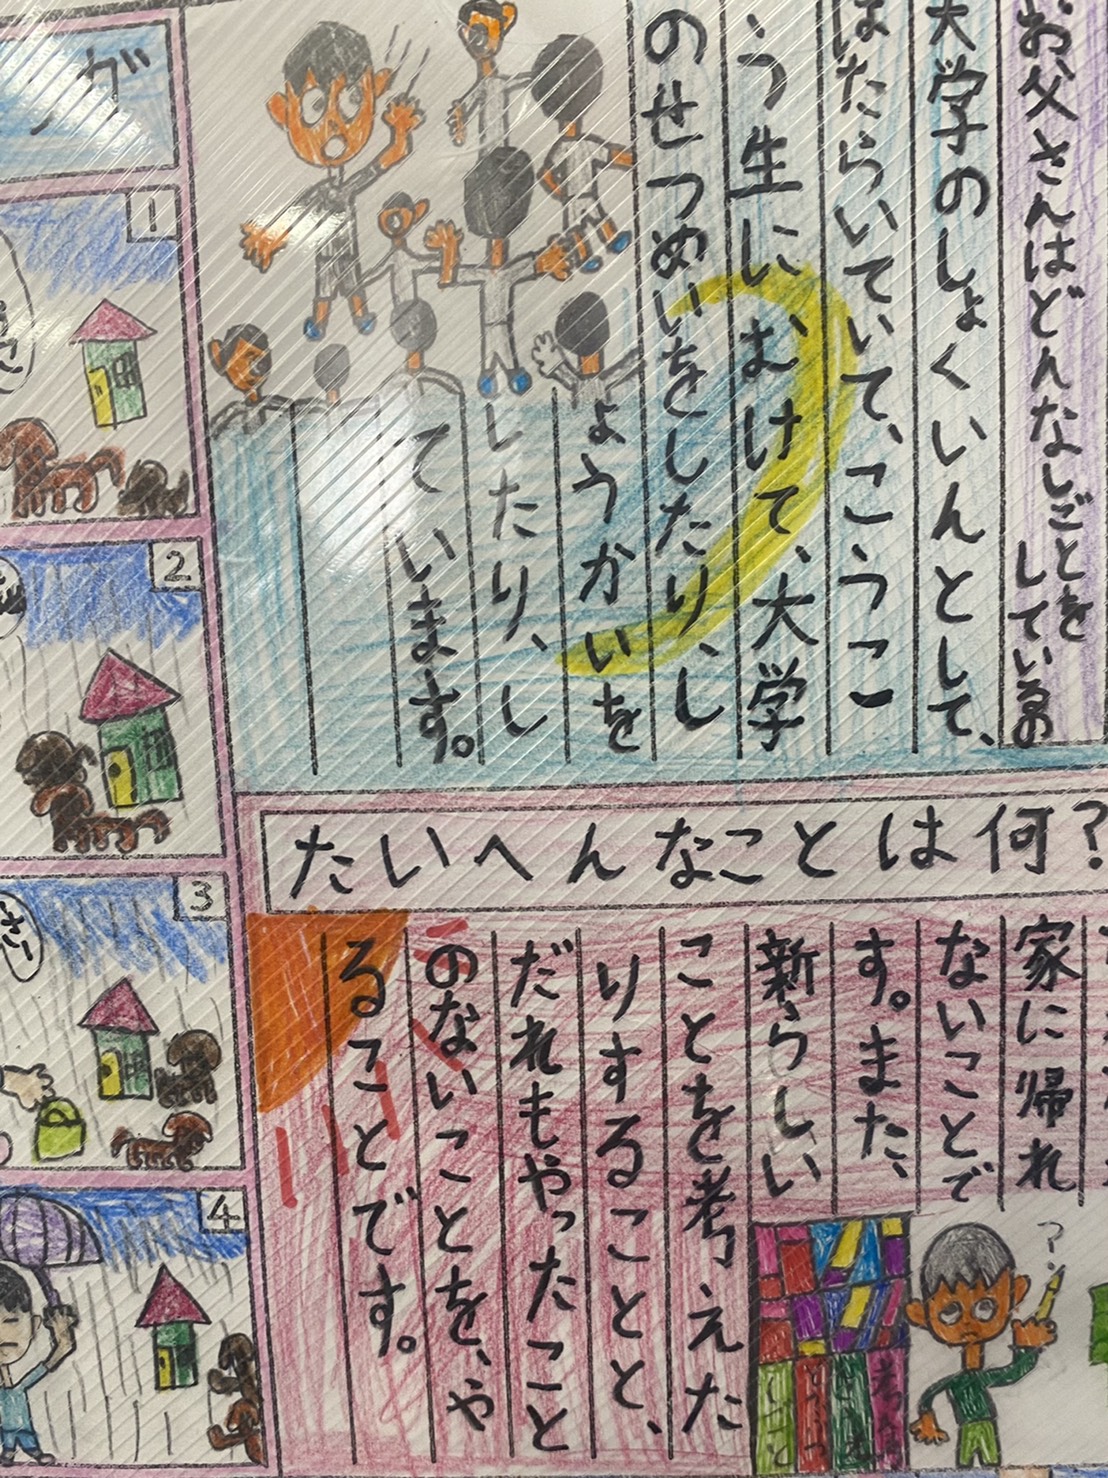 お父さんはどんなしごとを
しているの
大学のしょくいんとして、
はたらいていて、こうこ
う生に、むけて、大学
のせつめいをしたり、し
ょうかいを
したり、し
ています。
たいへんなことは何?
家に帰れ
ないことで
す。また、
新らしい
ことを考えた
りすることと、
だれもやったこと
のないことを、や
ることです。
?
が
1
2
3
4